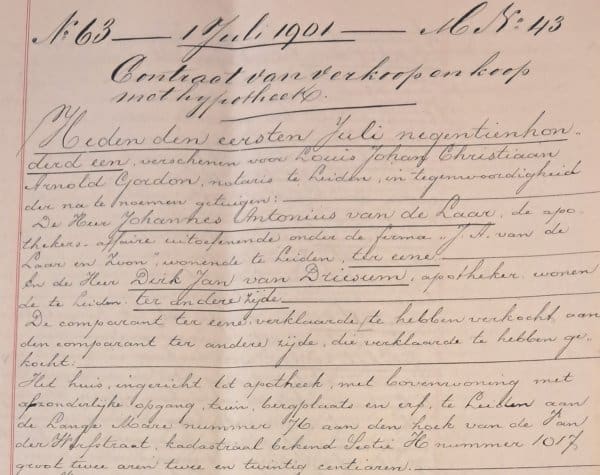 No. 63 — 1 Juli 1901 — M No. 43
Contract van verkoop en koop
met hypotheek.
Heden den eersten Juli negentienhon„
derd een, verschenen voor Louis Johan Christiaan
Arnold Gordon, notaris te Leiden, in tegenwoordigheid
der na te noemen getuigen:
De Heer Johannes Antonius van de Laar, de apo„
thekers-affaire uitoefenende onder de firma „J. A. van de
Laar en Zoon", wonende te Leiden, ter eene
En de Heer Dirk Jan van Driesum, apotheker wonen
de te Leiden ter andere zijde
De comparant ter eene verklaarde te hebben verkocht aan
den comparant ter andere zijde, die verklaarde te hebben ge„
kocht:
Het huis, ingericht tot apotheek, met bovenwoning met
afzonderlijke opgang, tuin, bergplaats en erf, te Leiden aan
de Lange Mare nummer 76 aan den hoek van de Van
der Werfstraat, kadastraal bekend Sectie H nummer 1017,
groot twee aren twee en twintig centiaren.